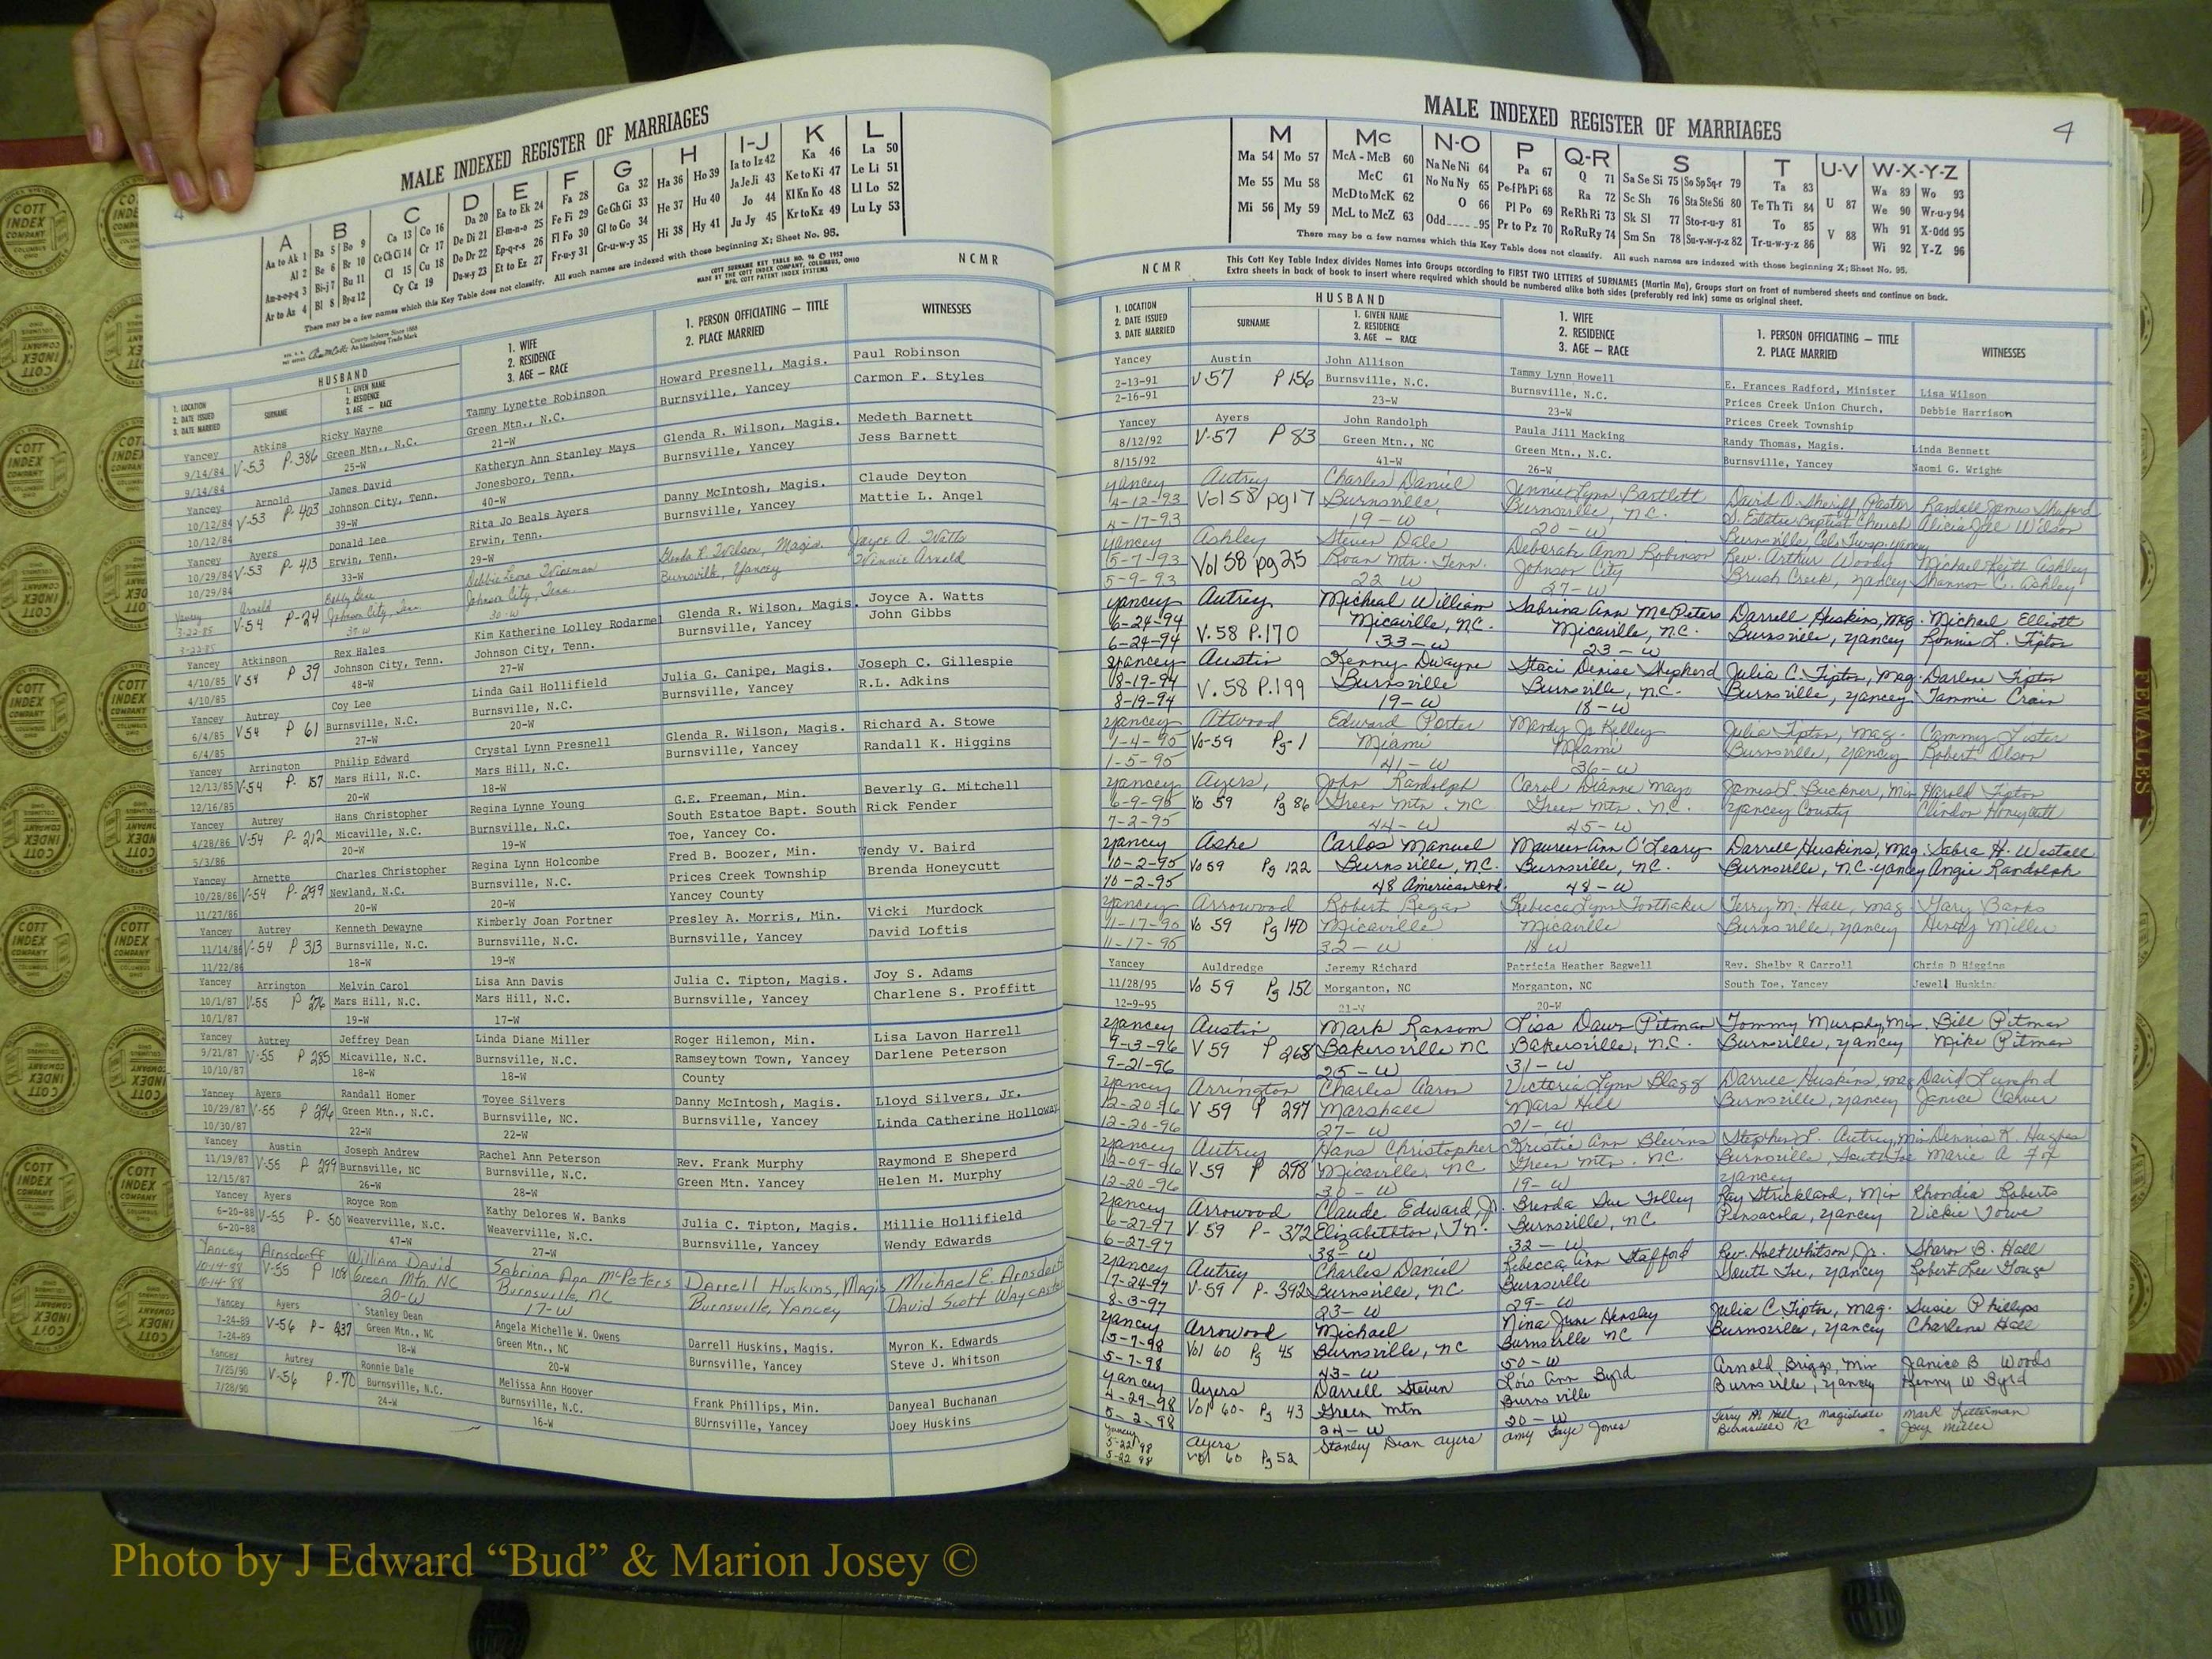 MALE INDEXED REGISTER OF MARRIAGES
4
A B C D E F G H I-J K L
Aa to Ak 1 Ba 5 Bo 9 Ca 13 Co 16 Da 20 Ea to Ek 24 Fa 28 Ga 32 Ha 36 Ho 39 Ia to Iz 42 Ka 46 La 50
Al 2 Be 6 Br 10 Ce Ch Ci 14 Cr 17 De Di 21 El-m-n-o 25 Fe Fi 29 Ge Gh Gi 33 He 37 Hu 40 Ja Je Ji 43 Ke to Ki 47 Le Li 51
An-n-o-p-q 3 Bi-j 7 Bu 11 Cl 15 Cu 18 Do Dr 22 Ep-q-r-s 26 Fl Fo 30 Gl to Go 34 Hi 38 Hy 41 Jo 44 Kl Kn Ko 48 Ll Lo 52
Ar to Az 4 Bl 8 By-z 12 Cy Cz 19 Du-w-y 23 Et to Ez 27 Fr-u-y 31 Gr-u-w-y 35 Ju Jy 45 Kr to Kz 49 Lu Ly 53
There may be a few names which this Key Table does not classify. All such names are indexed with those beginning X; Sheet No. 95.
COTT SURNAME KEY TABLE NO. 96 © 1952
MADE BY THE COTT INDEX COMPANY, COLUMBUS, OHIO
MFG. COTT PATENT INDEX SYSTEMS
NCMR
County Indexes Since 1888
An Identifying Trade Mark
1. LOCATION
2. DATE ISSUED
3. DATE MARRIED
HUSBAND
SURNAME
1. GIVEN NAME
2. RESIDENCE
3. AGE — RACE
1. WIFE
2. RESIDENCE
3. AGE — RACE
1. PERSON OFFICIATING — TITLE
2. PLACE MARRIED
WITNESSES
Yancey Atkins Ricky Wayne Tammy Lynette Robinson Howard Presnell, Magis. Paul Robinson
9/14/84 V-53 P-386 Green Mtn., N.C. Green Mtn., N.C. Burnsville, Yancey Carmon F. Styles
9/14/84 25-W 21-W
Yancey Arnold James David Katheryn Ann Stanley Mays Glenda R. Wilson, Magis. Medeth Barnett
10/12/84 V-53 P-403 Johnson City, Tenn. Jonesboro, Tenn. Burnsville, Yancey Jess Barnett
10/12/84 39-W 40-W
Yancey Ayers Donald Lee Rita Jo Beals Ayers Danny McIntosh, Magis. Claude Deyton
10/29/84 V-53 P-413 Erwin, Tenn. Erwin, Tenn. Burnsville, Yancey Mattie L. Angel
10/29/84 33-W 29-W
Yancey Arnold Bobby Gene Debbie Leona Wiseman Glenda R. Wilson, Magis. Joyce A. Watts
3-22-85 V-54 P-24 Johnson City, Tenn. Johnson City, Tenn. Burnsville, Yancey Winnie Arnold
3-22-85 30-W
Yancey Atkinson Rex Hales Kim Katherine Lolley Rodarmel Glenda R. Wilson, Magis. Joyce A. Watts
4/10/85 V-54 P 39 Johnson City, Tenn. Johnson City, Tenn. Burnsville, Yancey John Gibbs
4/10/85 48-W 27-W
Yancey Autrey Coy Lee Linda Gail Hollifield Julia G. Canipe, Magis. Joseph C. Gillespie
6/4/85 V54 P 61 Burnsville, N.C. Burnsville, N.C. Burnsville, Yancey R.L. Adkins
6/4/85 27-W 20-W
Yancey Arrington Philip Edward Crystal Lynn Presnell Glenda R. Wilson, Magis. Richard A. Stowe
12/13/85 V-54 P- 157 Mars Hill, N.C. Mars Hill, N.C. Burnsville, Yancey Randall K. Higgins
12/16/85 20-W 18-W
Yancey Autrey Hans Christopher Regina Lynne Young G.E. Freeman, Min. Beverly G. Mitchell
4/28/86 V-54 P- 212 Micaville, N.C. Burnsville, N.C. South Estatoe Bapt. South Rick Fender
5/3/86 20-W 19-W Toe, Yancey Co.
Yancey Arnette Charles Christopher Regina Lynn Holcombe Fred B. Boozer, Min. Wendy V. Baird
10/28/86 V-54 P-299 Newland, N.C. Burnsville, N.C. Prices Creek Township Brenda Honeycutt
11/27/86 20-W 20-W Yancey County
Yancey Autrey Kenneth Dewayne Kimberly Joan Fortner Presley A. Morris, Min. Vicki Murdock
11/14/86 V-54 P 313 Burnsville, N.C. Burnsville, N.C. Burnsville, Yancey David Loftis
11/22/86 18-W 19-W
Yancey Arrington Melvin Carol Lisa Ann Davis Julia C. Tipton, Magis. Joy S. Adams
10/1/87 V-55 P 276 Mars Hill, N.C. Mars Hill, N.C. Burnsville, Yancey Charlene S. Proffitt
10/1/87 19-W 17-W
Yancey Autrey Jeffrey Dean Linda Diane Miller Roger Hilemon, Min. Lisa Lavon Harrell
9/21/87 V-55 P 285 Micaville, N.C. Burnsville, N.C. Ramseytown Town, Yancey Darlene Peterson
10/10/87 18-W 18-W County
Yancey Ayers Randall Homer Toyee Silvers Danny McIntosh, Magis. Lloyd Silvers, Jr.
10/29/87 V-55 P 296 Green Mtn., N.C. Burnsville, NC. Burnsville, Yancey Linda Catherine Holloway
10/30/87 22-W 22-W
Yancey Austin Joseph Andrew Rachel Ann Peterson Rev. Frank Murphy Raymond E Sheperd
11/19/87 V-55 P 299 Burnsville, NC Burnsville, N.C. Green Mtn. Yancey Helen M. Murphy
12/15/87 26-W 28-W
Yancey Ayers Royce Rom Kathy Delores W. Banks Julia C. Tipton, Magis. Millie Hollifield
6-20-88 V-55 P- 50 Weaverville, N.C. Weaverville, N.C. Burnsville, Yancey Wendy Edwards
6-20-88 47-W 27-W
Yancey Arnsdorff William David Sabrina Ann McPeters Darrell Huskins, Magis Michael E. Arnsdorff
10-14-88 V-55 P 108 Green Mtn, NC Burnsville, NC Burnsville, Yancey David Scott Waycaster
10-14-88 20-W 17-W
Yancey Ayers Stanley Dean Angela Michelle W. Owens Darrell Huskins, Magis. Myron K. Edwards
7-24-89 V-56 P- 237 Green Mtn., NC Green Mtn., NC Burnsville, Yancey Steve J. Whitson
7-24-89 18-W 20-W
Yancey Autrey Ronnie Dale Melissa Ann Hoover Frank Phillips, Min. Danyeal Buchanan
7/25/90 V-56 P-70 Burnsville, N.C. Burnsville, N.C. BUrnsville, Yancey Joey Huskins
7/28/90 24-W 16-W
MALE INDEXED REGISTER OF MARRIAGES
4
M Mc N-O P Q-R S T U-V W-X-Y-Z
Ma 54 Mo 57 McA - McB 60 Na Ne Ni 64 Pa 67 Q 71 Sa Se Si 75 So Sp Sq-r 79 Ta 83 U 87 Wa 89 Wo 93
Me 55 Mu 58 McC 61 No Nu Ny 65 Pe-f Ph Pi 68 Ra 72 Sc Sh 76 Sta Ste Sti 80 Te Th Ti 84 We 90 Wr-u-y 94
Mi 56 My 59 McD to McK 62 O 66 Pl Po 69 Re Rh Ri 73 Sk Sl 77 Sto-r-u-y 81 To 85 V 88 Wh 91 X-Odd 95
McL to McZ 63 Odd 95 Pr to Pz 70 Ro Ru Ry 74 Sm Sn 78 Su-v-w-y-z 82 Tr-u-w-y-z 86 Wi 92 Y-Z 96
There may be a few names which this Key Table does not classify. All such names are indexed with those beginning X; Sheet No. 95.
NCMR
This Cott Key Table Index divides Names into Groups according to FIRST TWO LETTERS of SURNAMES (Martin Ma), Groups start on front of numbered sheets and continue on back.
Extra sheets in back of book to insert where required which should be numbered alike both sides (preferably red ink) same as original sheet.
1. LOCATION
2. DATE ISSUED
3. DATE MARRIED
HUSBAND
SURNAME
1. GIVEN NAME
2. RESIDENCE
3. AGE — RACE
1. WIFE
2. RESIDENCE
3. AGE — RACE
1. PERSON OFFICIATING — TITLE
2. PLACE MARRIED
WITNESSES
Yancey Austin John Allison Tammy Lynn Howell E. Frances Radford, Minister Lisa Wilson
2-13-91 V57 P 156 Burnsville, N.C. Burnsville, N.C. Prices Creek Union Church, Debbie Harrison
2-16-91 23-W 23-W Prices Creek Township
Yancey Ayers John Randolph Paula Jill Macking Randy Thomas, Magis. Linda Bennett
8/12/92 V-57 P 83 Green Mtn., NC Green Mtn., N.C. Burnsville, Yancey Naomi G. Wright
8/15/92 41-W 26-W
Yancey Autrey Charles Daniel Jennie Lynn Bartlett David D. Sheriff, Pastor Randall James Sheperd
4-12-93 Vol 58 pg 17 Burnsville, Burnsville, N.C. S. Estatoe Baptist Church Alicia Jae Wilson
4-17-93 19-W 20-W Burnsville, Yancey
Yancey Ashley Steven Dale Deborah Ann Robinson Rev. Arthur Woody Michael Keith Ashley
5-7-93 Vol 58 pg 25 Roan Mtn. Tenn. Johnson City Brush Creek, Yancey Shannon C. Ashley
5-9-93 22 W 27-W
Yancey Autrey Micheal William Sabrina Ann McPeters Darrell Huskins, Mag. Michael Elliott
6-24-94 V. 58 P. 170 Micaville, NC. Micaville, N.C. Burnsville, Yancey Ronnie L. Tipton
6-24-94 33-W 23-W
Yancey Austin Kenny Dwayne Staci Denise Shepherd Julia C. Tipton, Mag. Darlene Tipton
8-19-94 V. 58 P. 199 Burnsville Burnsville, N.C. Burnsville, Yancey Tammie Crain
8-19-94 19-W 18-W
Yancey Atwood Edward Porter Mandy Jo Kelley Julia Tipton, Mag. Cammy Lester
1-4-95 Vo-59 Pg-1 Miami Miami Burnsville, Yancey Robert Olson
1-5-95 41-W 36-W
Yancey Ayers, John Randolph Carol Dianne Mayo James L. Buckner, Min Harold Tipton
6-9-95 Vo 59 Pg 86 Green Mtn. NC Green Mtn. N.C. Yancey County Clindon Honeycutt
7-2-95 44-W 45-W
Yancey Ashe Carlos Manuel Maureen Ann O'Leary Darrell Huskins, Mag. Sabra H. Westall
10-2-95 Vo 59 Pg 122 Burnsville, N.C. Burnsville, N.C. Burnsville, N.C. Yancey Angie Randolph
10-2-95 48 American Ind. 48-W
Yancey Arrowood Robert Regan Rebecca Lynn Forthaker Terry M. Hall, Mag Gary Banks
11-17-95 Vo 59 Pg 140 Micaville Micaville Burnsville, Yancey Miller
11-17-95 32-W 18 W
Yancey Auldredge Jeremy Richard Patricia Heather Bagwell Rev. Shelby R Carroll Chris D Higgins
11/28/95 Vo 59 Pg 152 Morganton, NC Morganton, NC South Toe, Yancey Jewell Huskins
12-9-95 21-W 20-W
Yancey Austin Mark Ransom Lisa Dawn Pitman Tommy Murphy, Min. Bill Pitman
9-13-96 V 59 P 268 Bakersville NC Bakersville, N.C. Burnsville, Yancey Mike Pitman
9-21-96 25-W 31-W
Yancey Arrington Charles Aaron Victoria Lynn Blagg Darrell Huskins, Mag David Lunsford
12-20-96 V 59 P 297 Marshall Mars Hill Burnsville, Yancey Janice Carver
12-20-96 27-W 21-W
Yancey Autrey Hans Christopher Kristie Ann Blevins Stephen L. Autrey, Min Dennis K. Hughes
12-09-96 V 59 P 298 Micaville, NC Green Mtn. N.C. Burnsville, South Toe Marie A Fox
12-20-96 30-W 19-W Yancey
Yancey Arrowood Claude Edward, Jr. Brenda Sue Tolley Ray Strickland, Min Rhondia Roberts
6-27-97 V 59 P-372 Elizabethton, Tn. Burnsville, NC Pensacola, Yancey Vickie Towe
6-27-97 38-W 32-W
Yancey Autrey Charles Daniel Rebecca Ann Stafford Rev. Holt Whitson, Jr. Sharon B. Hall
7-24-97 V-59 P-392 Burnsville, NC Burnsville South Toe, Yancey Robert Lee Gouge
8-3-97 23-W 29-W
Yancey Arrowood Michael Nina June Hensley Julia C Tipton, Mag. Susie Phillips
5-7-98 Vol 60 Pg 45 Burnsville, NC Burnsville NC Burnsville, Yancey Charlene Hall
5-7-98 43-W 50-W
Yancey Ayers Darrell Steven Lois Ann Byrd Arnold Briggs, Min Janice B Woods
4-29-98 Vol 60- Pg 43 Green Mtn Burnsville Burnsville, Yancey Kenny W Byrd
5-2-98 24-W 20-W
Yancey Ayers Stanley Dean Ayers Amy Faye Jones Terry M Hall, Magistrate Mark Letterman
5-22-98 Vol 60 Pg 52 Burnsville NC Joey Miller
5-22 98
FEMALES
COTT
INDEX
COMPANY
OHIO
Photo by J Edward “Bud” & Marion Josey ©